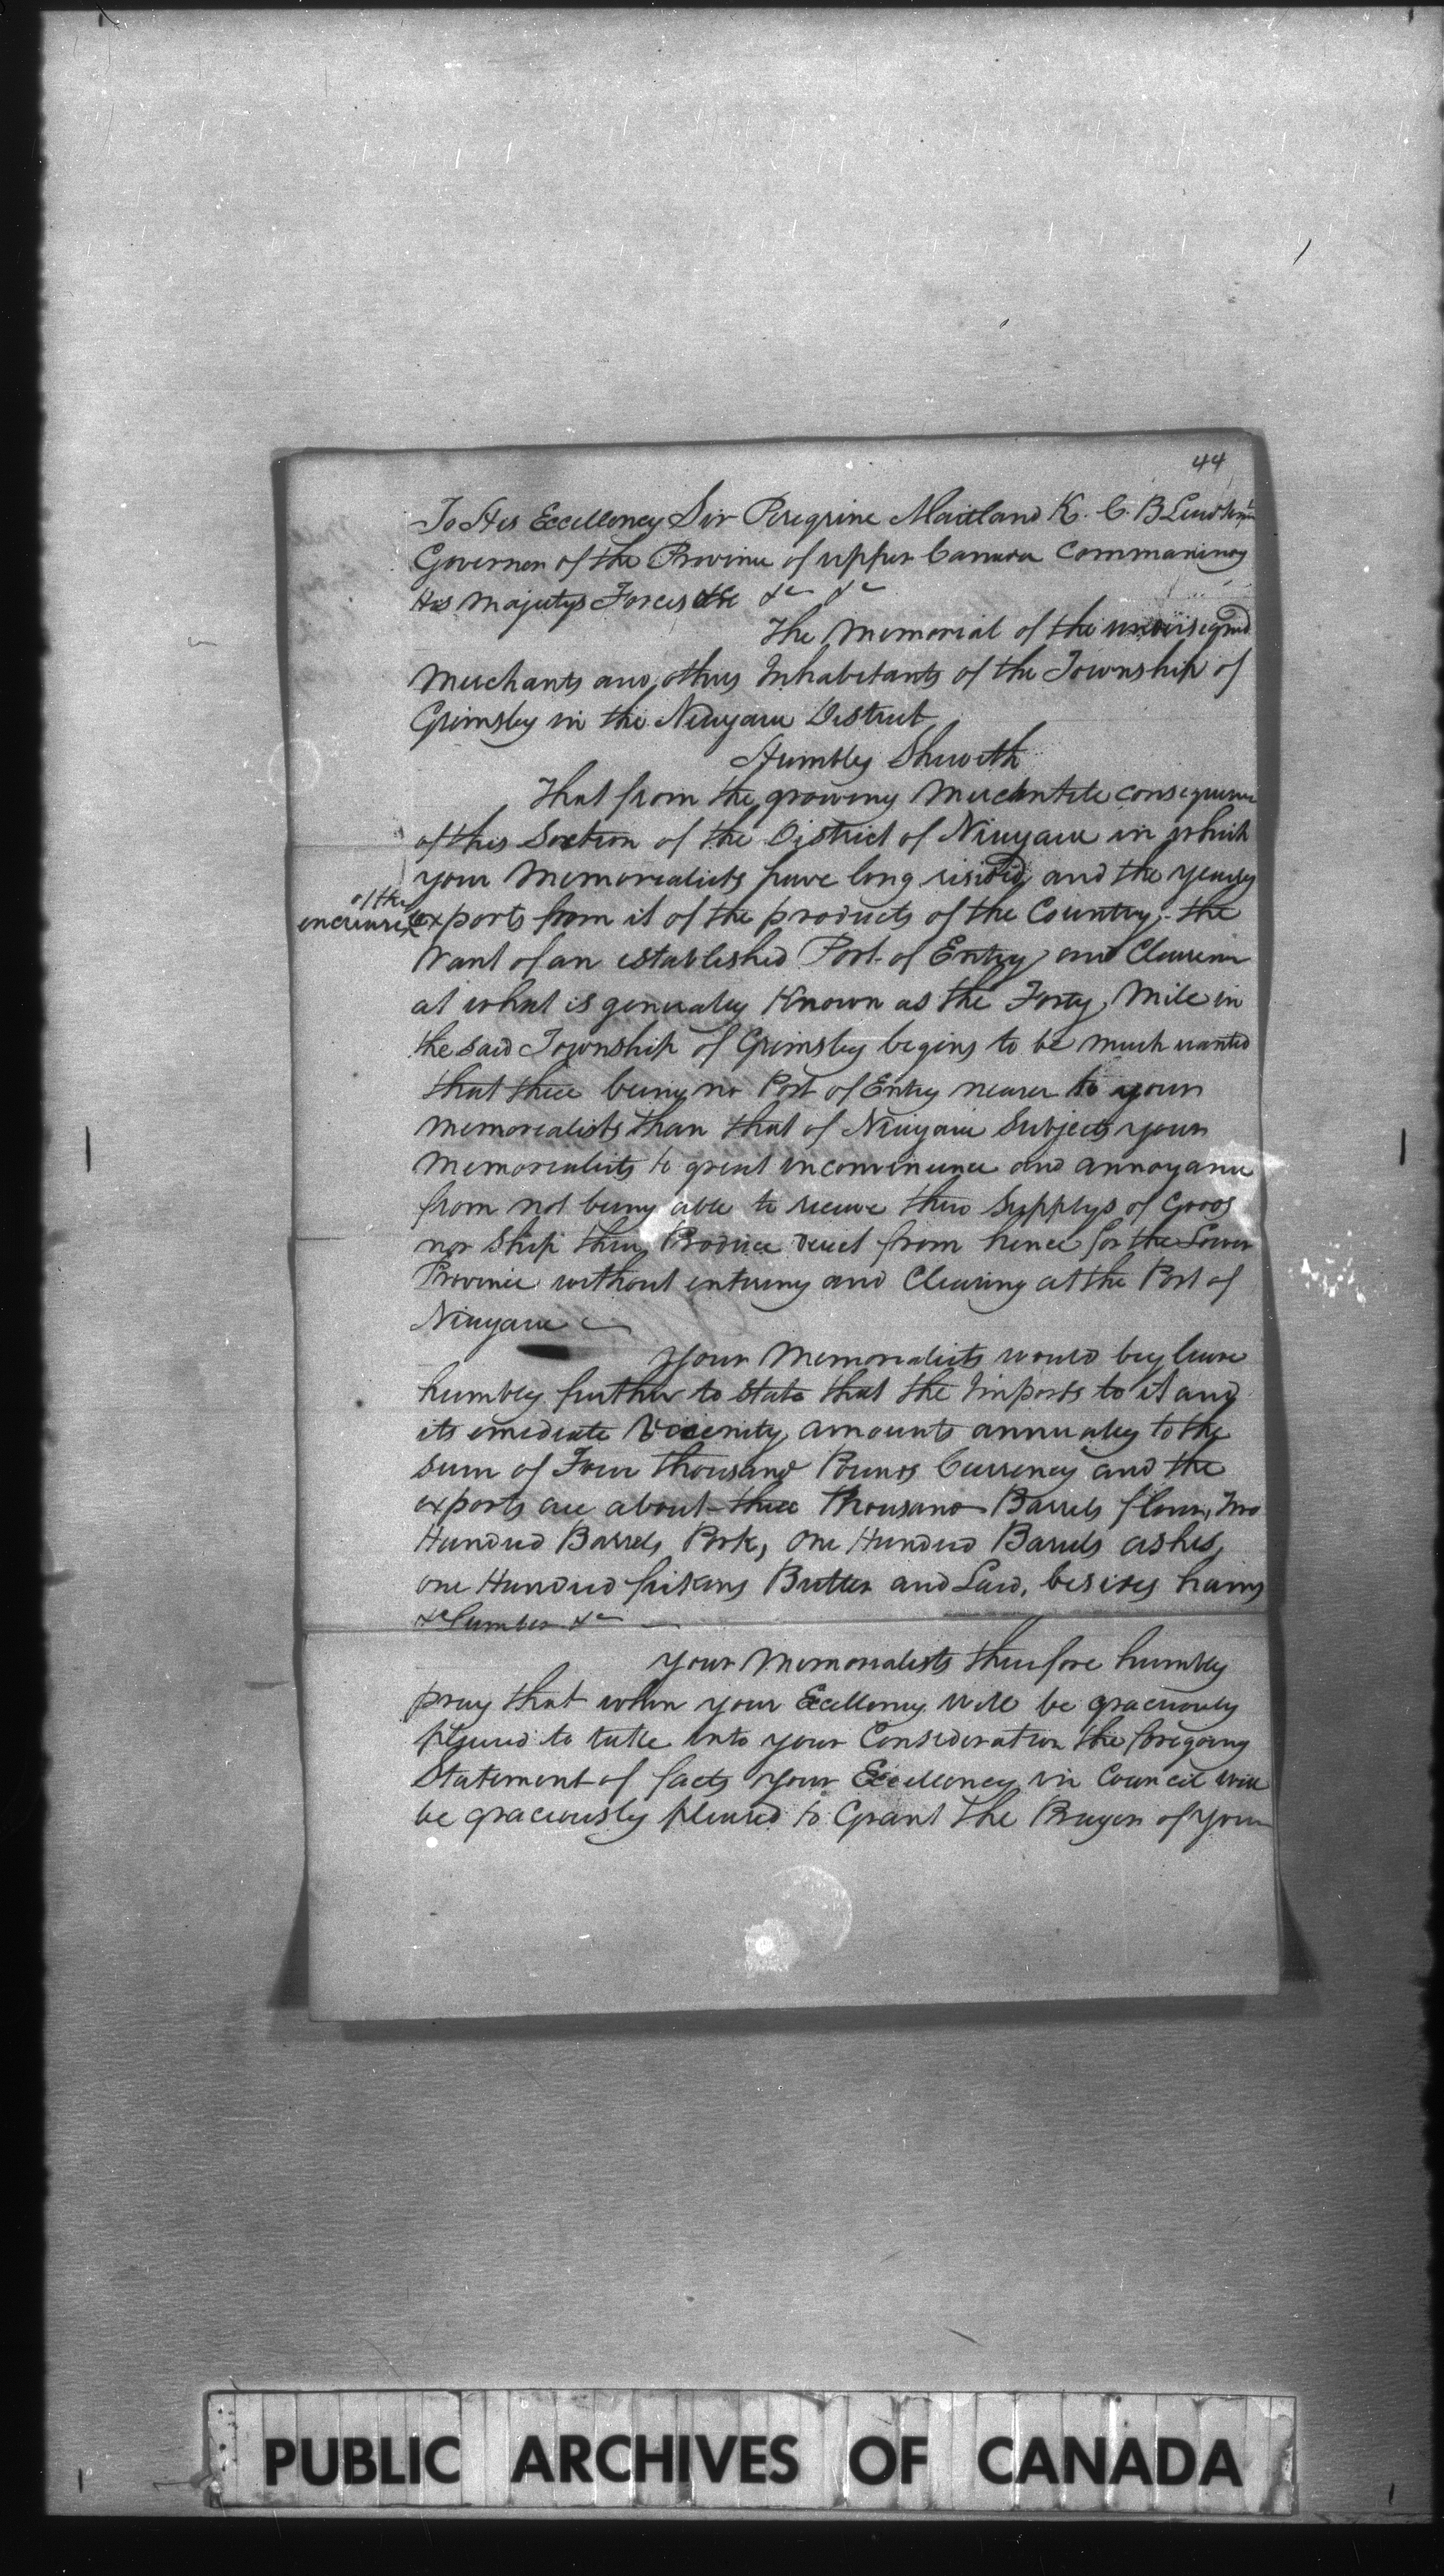 44
To His Excellency Sir Peregrine Maitland K. C. B Lieutenant
Governor of the Province of upper Canada Commanding
His Majestys Forces &c &c &c
The Memorial of the undersigned
Merchants and others Inhabitants of the Township of
Grimsby in the Niagara District
Humbly Sheweth
That from the growing Merchantile consequence
of this Section of the District of Niagara in which
your Memorialists have long resided, and the yearly
encrease of the exports from it of the products of the Country, the
Want of an established Port of Entry and Clearance
at what is generally Known as the Forty Mile in
the said Township of Grimsby begins to be much wanted
that there being no Port of Entry nearer to your
Memorialists than that of Niagara Subjects your
Memorialists to great inconvenience and annoyance
from not being able to receive their Supplys of Goods
nor Ship their Produce direct from hence for the Lower
Province without entering and Clearing at the Port of
Niagara
Your Memorialists would beg leave
humbly further to State that the Imports to it and
its emediate Vicenity amounts annually to the
Sum of Four thousand Pounds Currency and the
exports are about three thousand Barrels flour, Two
Hundred Barrels Pork, One Hundred Barrels ashes,
one Hundred firkins Butter and Lard, besides hams
&c Lumber &c
Your Memorialists therefore humbly
pray that when your Excellency Will be graciously
pleased to take into your Consideration the foregoing
Statement of facts your Excellency in Council Will
be graciously pleased to Grant the Prayer of your
PUBLIC ARCHIVES OF CANADA